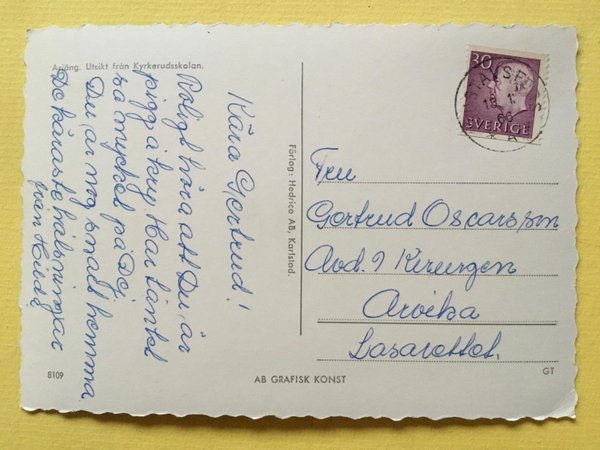 Årjäng. Utsikt från Kyrkerudsskolan.
Kära Gertrud!
Roligt höra att Du är
pigg å kry. Har tänkt
så mycket på Dej
Du är nog snart hemma.
De käraste hälsningar
från Hilda
Förlag: Hedrico AB, Karlstad.
30
SVERIGE
Fru
Gertrud Oscarsson
Avd. 9 Kirurgen
Arvika
Lasarettet.
8109
AB GRAFISK KONST
GT